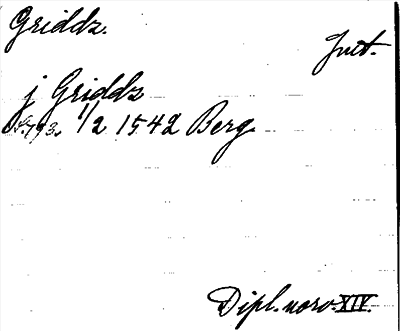 Griddz.
Jut.
j Griddz
S. 793. 1/2 1542 Berg
Dipl. norv. XIV.